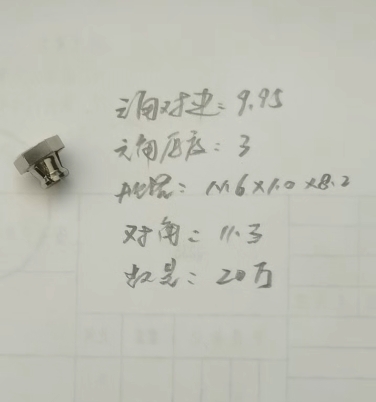 六角对边: 9.95
六角厚度: 3
M6×1.0×8.2
对角: 11.3
数量: 20万